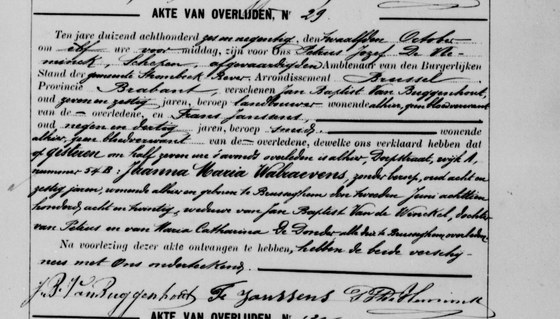 AKTE VAN OVERLIJDEN, N° 29.
Ten jare duizend achthonderd zes en negentig, den twaalfden October
om elf ure voor middag, zijn voor Ons Petrus Jozef De Vle-
minck, Schepen, afgevaardigden Ambtenaar van den Burgerlijken
Stand der gemeente Strombeek Bever. Arrondissement Brussel
Provincie Brabant, verschenen Jan Baptist Van Buggenhout,
oud zeven en zestig jaren, beroep landbouwer wonende alhier, geen bloedverwant
van de overledene, en Frans Janssens,
oud negen en dertig jaren, beroep smid, wonende
alhier, geen bloedverwant van de overledene, dewelke ons verklaard hebben dat
op gisteren om half zeven ure 's avonds overleden is alhier Dorpstraat, wijk A,
nummer 54B: Joanna Maria Walraevens, zonder beroep, oud acht en
zestig jaren, wonende alhier en geboren te Brusseghem den tweeden Juni achttien
honderd acht en twintig, weduwe van Jan Baptist Van de Winckel, dochter
van Petrus en van Maria Catharina De Donder alle drie te Brusseghem overleden.
Na voorlezing dezer akte ontvangen te hebben, hebben de beide verschij-
ners met Ons onderteekend.
J. B. Van Buggenhout Fr Janssens
AKTE VAN OVERLIJDEN, N°